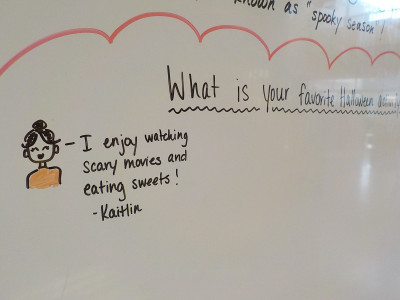 known as "spooky season"!
What is your favorite Halloween
- I enjoy watching
scary movies and
eating sweets!
- Kaitlin